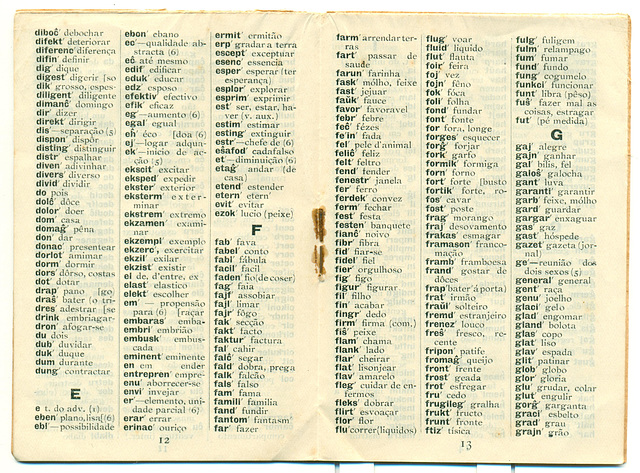 diboĉ' debochar
difekt' deteriorar
diferenc' diferença
difin' definir
dig' dique
digest' digerir [so
dik' grosso, espes-
diligent' diligente
dimanĉ' domingo
dir' dizer
direkt' dirigir
dis'—separação (5)
dispon' dispôr
disting' distinguir
distr' espalhar
diven' adivinhar
divers' diverso
divid' dividir
do pois
dolĉ' dôce
dolor' doer
dom' casa
domaĝ' pêna
don' dar
donac' presentear
dorlot' amimar
dorm' dormir
dors' dôrso, costas
dot' dotar
drap' pano [go
draŝ' bater (o tri-
dres' adestrar [se
drink' embriagar-
dron' afogar-se
du dois
dub' duvidar
duk' duque
dum durante
dung' contractar
E
e t. do adv. (1)
eben' plano, liso [(6)
ebl'—possibilidade
ebon' ebano
ec'—qualidade ab-
stracta (6)
eĉ até mesmo
edif' edificar
eduk' educar
edz' esposo
efektiv' efectivo
efik' eficaz
eg—aumento (6)
egal' egual
eĥ' éco [doa (6)
ej'—logar adqua-
ek—inicio de ac-
ção (5)
ekscit' excitar
eksped' expedir
ekster' exterior
eksterm' exter-
minar
ekstrem' extremo
ekzamen' exami-
nar
ekzempl' exemplo
ekzerc' exercitar
ekzil' exilar
ekzist' existir
el de, d'entre, ex
elast' elastico
elekt' escolher
em' — propensão
para (6) [raçar
embaras' emba-
embri' embrião
embusk' embus-
cada
eminent' eminente
en em ender
entrepren' empre-
enu' aborrecer-se
envi' invejar
er'—elemento, uni-
dade parcial (6)
erar' errar
erinac' ouriço
ermit' ermitão
erp' gradar a terra
escept' exceptuar
esenc' essencia
esper' esperar (ter
esperança)
esplor' explorar
esprim' exprimir
est' ser, estar, ha-
ver (v. aux.)
estim' estimar
esting' extinguir
estr'—chefe de (6)
eŝafod' cadafalso
et'—diminuição (6)
etaĝ' andar (de
casa)
etend' estender
etern' etern'
evit' evitar
ezok' lucio (peixe)
F
fab' fava
fabel' conto
fabl' fábula
facil' facil
faden' fio [de coser)
fag' faia
fajf' assobiar
fajl' limar
fajr' fôgo
fak' secção
fakt' facto
faktur' factura
fal' cahir
falĉ' segar
fald' dobra, prega
falk' falcão
fals' falso
fam' fama
famili' familia
fand' fundir
fantom' fantasm'
far' fazer
12
farm' arrendar ter-
ras
fart' passar de
saude
farun' farinha
fask' mólho, feixe
fast' jejuar
faŭk' fauce
favor' favoravel
febr' febre
feĉ' fézes
fe'in' fada
fel' pele d'animal
feliĉ' feliz
felt' feltro
fend' fender
fenestr' janela
fer' ferro
ferdek' convez
ferm' fechar
fest' festa
festen' banquete
fianĉ' noivo
fibr' fibra
fid' fiar-se
fidel' fiel
fier' orgulhoso
fig' figo
figur' figurar
fil' filho
fin' acabar
fingr' dedo
firm' firma (com.)
fiŝ' peixe
flam' chama
flank' lado
flar' cheirar
flat' lisonjear
flav' amarelo
fleg' cuidar de en-
fermos
fleks' dobrar
flirt' esvoaçar
flor' flor
flu' correr (liquidos)
flug' voar
fluid' liquido
flut' flauta
foir' feira
foj' vez
fojn' fêno
fok' fóca
foli' folha
fond' fundar
font' fonte
for fora, longe
forges' esquecer
forĝ' forjar
fork' garfo
formik' formiga
forn' forno
fort' forte [busto
fortik' forte, ro-
fos' cavar
fost' poste
frag' morango
fraj' desovamento
frakas' esmagar
framason' franco-
mação
framb' framboesa
frand' gostar de
dôces
frap' bater á porta)
frat' irmão
fraŭl' solteiro
fremd' estranjeiro
frenez' louco
freŝ' fresco, re-
cente
fripon' patife
fromaĝ' queijo
front' frente
frost' geada
frot' esfregar
fru' cedo
frugileg' gralha
frukt' fructo
frunt' fronte
ftiz' tisica
fulg' fuligem
fulm' relampago
fum' fumar
fund' fundo
fung' cogumelo
funkci' funccionar
funt' libra (pêso)
fuŝ' fazer mal as
coisas, estragar
fut' (pé medida)
G
gaj' alegre
gajn' ganhar
gal' bilis, fel
galoŝ' galocha
gant' luva
garanti' garantir
garb' feixe, mólho
gard' guardar
gargar' enxaguar
gas' gaz
gast' hóspede
gazet' gazeta (jor-
nal)
ge'—reunião dos
dois sexos (5)
general' general
gent' raça
genu' joelho
glaci' gelo
glad' engomar
gland' bolota
glas' copo
glat' liso
glav' espada
glit' patinar
glob' globo
glor' gloria
glu' grudar, colar
glut' engulir
gorĝ' garganta
graci' esbelto
grad' grau
grajn' grão
13